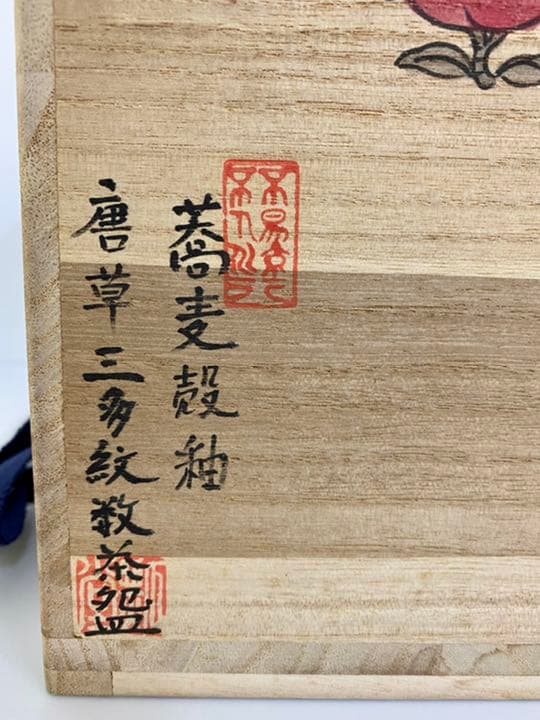 蕎麦殻釉
唐草三多紋数茶盌